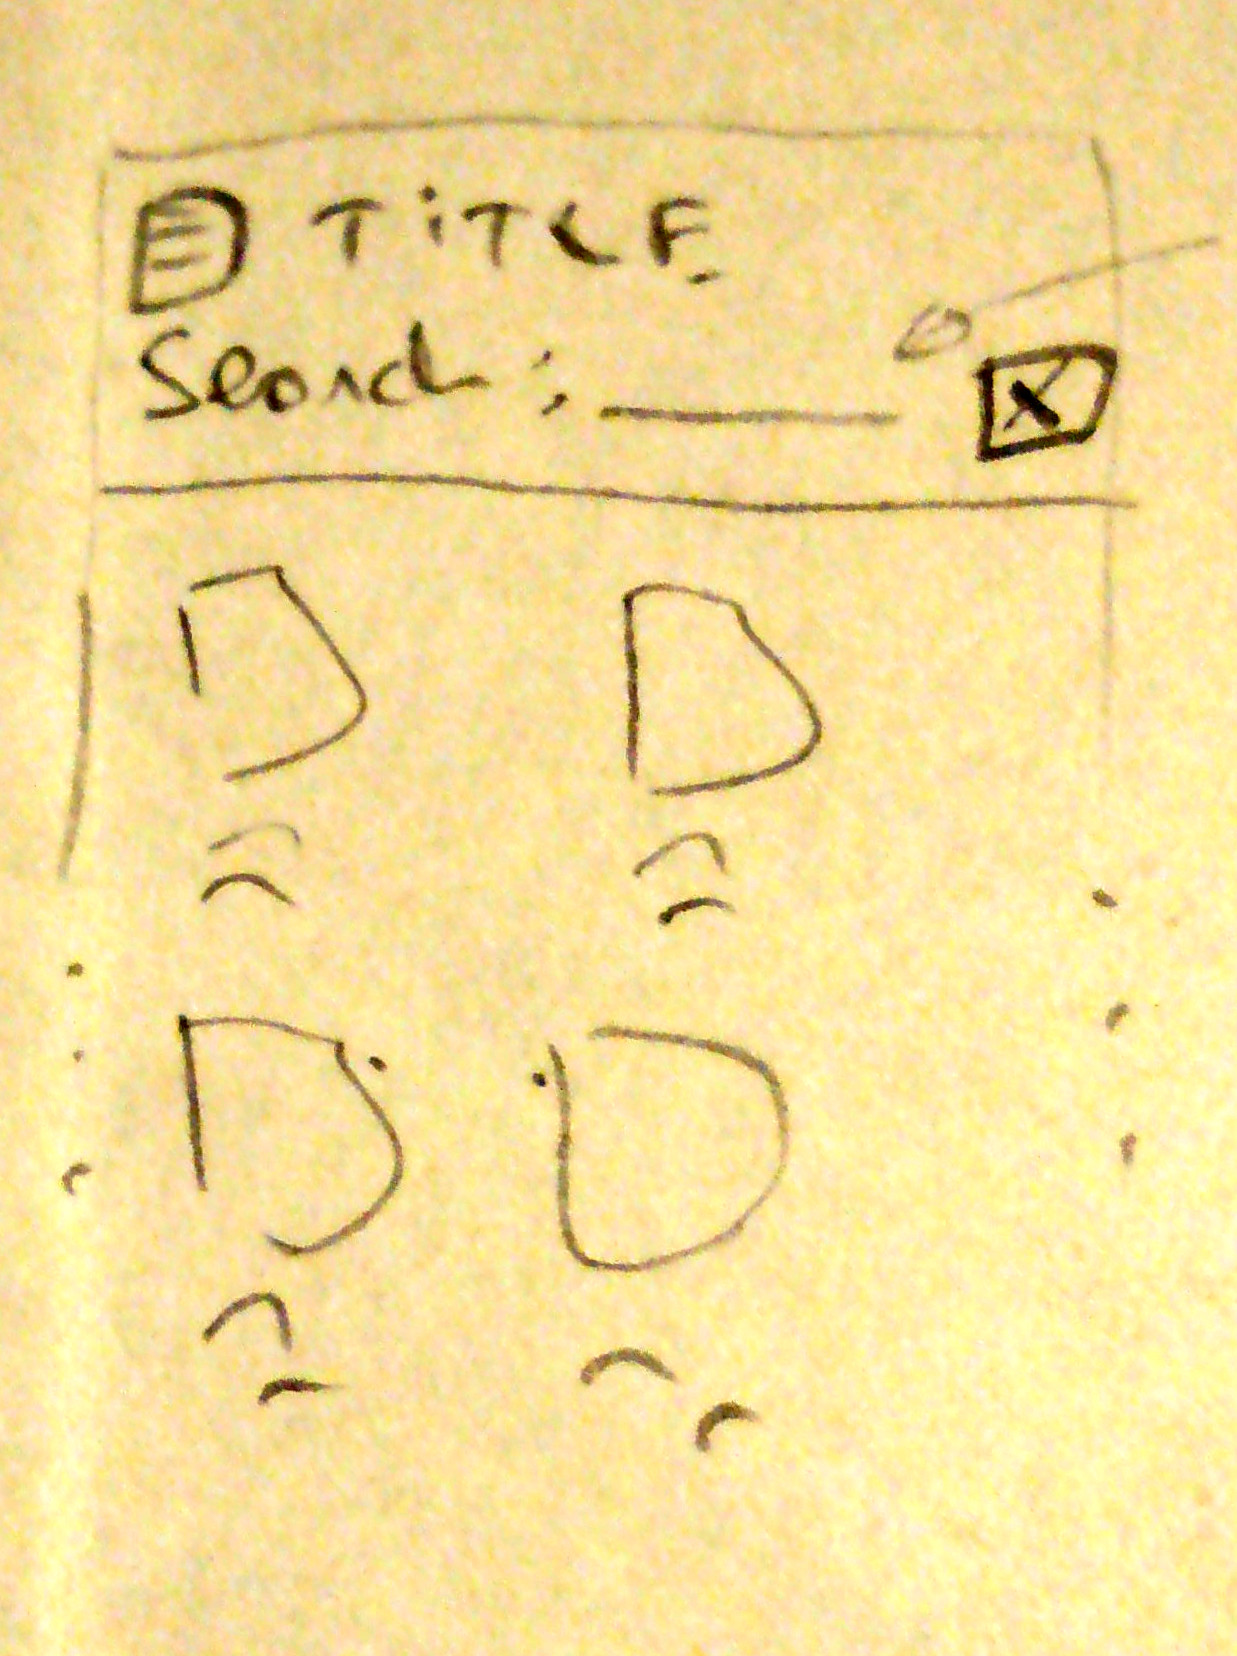 TiTLE
Search : ____
X